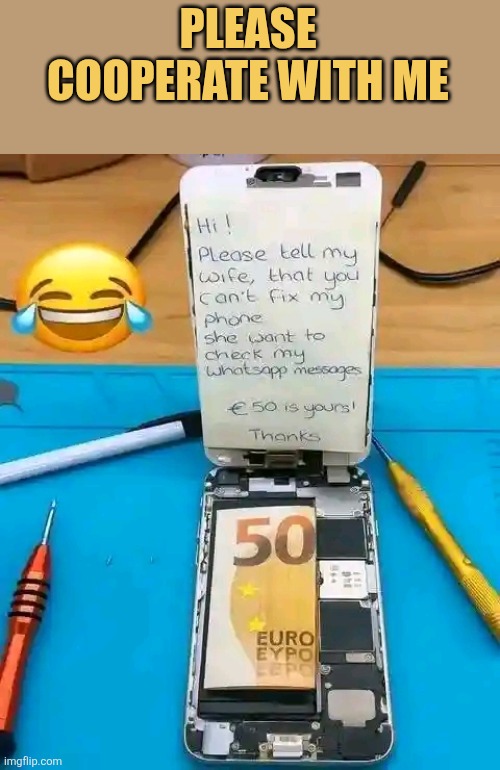 PLEASE
COOPERATE WITH ME
Hi!
Please tell my
wife, that you
can't fix my
phone
she want to
check my
Whatsapp messages
€50 is yours!
Thanks
50
EURO
EYPO
ЕВРО
imgflip.com